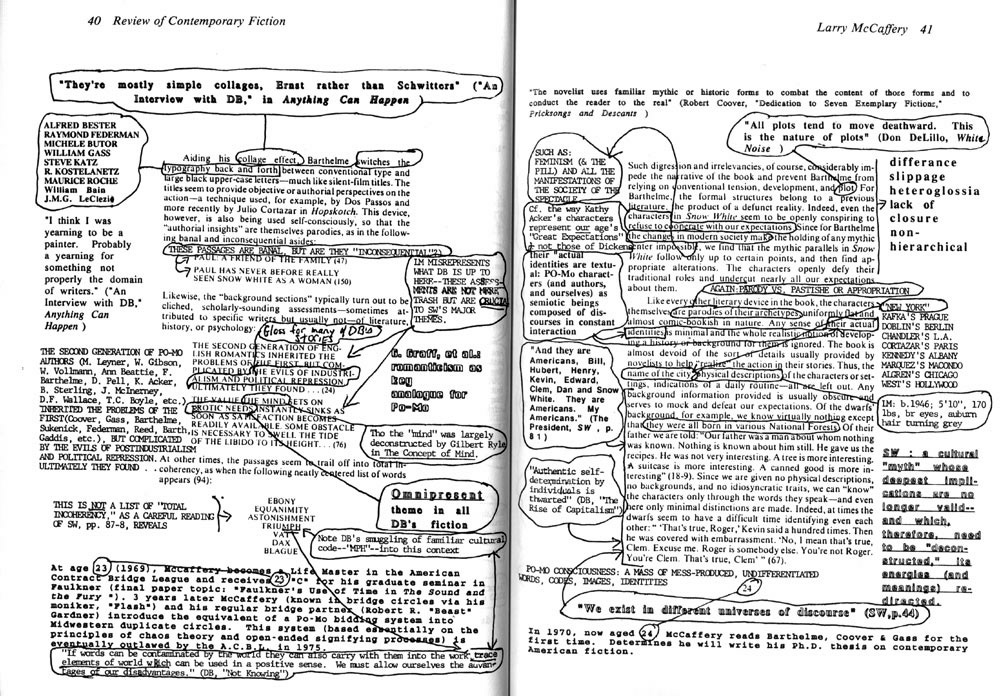 40 Review of Contemporary Fiction
"They're mostly simple collages, Ernst rather than Schwitters" ("An
Interview with DB," in Anything Can Happen )
ALFRED BESTER
RAYMOND FEDERMAN
MICHELE BUTOR
WILLIAM GASS
STEVE KATZ
R. KOSTELANETZ
MAURICE ROCHE
William Bain
J.M.G. LeClezio
"I think I was
yearning to be a
painter. Probably
a yearning for
something not
properly the domain
of writers. ("An
Interview with DB,"
Anything Can
Happen )
Aiding his collage effect, Barthelme switches the
typography back and forth between conventional type and
large black upper-case letters—much like silent-film titles. The
titles seem to provide objective or authorial perspectives on the
action—a technique used, for example, by Dos Passos and
more recently by Julio Cortazar in Hopskotch. This device,
however, is also being used self-consciously, so that the
"authorial insights" are themselves parodies, as in the follow-
ing banal and inconsequential asides:
(THESE PASSAGES ARE BANAL, BUT ARE THEY "INCONSEQUENTIAL"?)
PAUL: A FRIEND OF THE FAMILY (47)
PAUL HAS NEVER BEFORE REALLY
SEEN SNOW WHITE AS A WOMAN (150)
LM MISREPRESENTS
WHAT DB IS UP TO
HERE--THESE
MENTS ARE NOT MERE
TRASH BUT ARE CRUCIAL
TO SW'S MAJOR
THEMES.
Likewise, the "background sections" typically turn out to be
cliched, scholarly-sounding assessments—sometimes at-
tributed to specific writers but usually not—of literature,
history, or psychology:
Gloss for many of DB's
stories
THE SECOND GENERATION OF ENG-
LISH ROMANTICS INHERITED THE
PROBLEMS OF THE FIRST, BUT COM-
PLICATED BY THE EVILS OF INDUSTRI-
ALISM AND POLITICAL REPRESSION.
ULTIMATELY THEY FOUND . . . (24)
THE VALUE THE MIND SETS ON
EROTIC NEEDS INSTANTLY SINKS AS
SOON AS SATISFACTION BECOMES
READILY AVAILABLE. SOME OBSTACLE
IS NECESSARY TO SWELL THE TIDE
OF THE LIBIDO TO ITS HEIGHT. . . . (76)
G. Graff, et al.:
romanticism as
key
analogue for
Po-Mo
THE SECOND GENERATION OF PO-MO
AUTHORS (M. Leyner, W. Gibson,
W. Vollmann, Ann Beattie, F.
Barthelme, D. Pell, K. Acker,
B. Sterling, J. McInerney,
D.F. Wallace, T.C. Boyle, etc.)
INHERITED THE PROBLEMS OF THE
FIRST(Coover, Gass, Barthelme,
Sukenick, Federman, Reed, Barth
Gaddis, etc.), BUT COMPLICATED
BY THE EVILS OF POSTINDUSTRIALISM
AND POLITICAL REPRESSION.
ULTIMATELY THEY FOUND . .
Tho the "mind" was largely
deconstructed by Gilbert Ryle
in The Concept of Mind.
At other times, the passages seem to trail off into total in-
coherency, as when the following neatly centered list of words
appears (94):
THIS IS NOT A LIST OF "TOTAL
INCOHERENCY," AS A CAREFUL READING
OF SW, pp. 87-8, REVEALS
EBONY
EQUANIMITY
ASTONISHMENT
TRIUMPH
VAT
DAX
BLAGUE
Omnipresent
theme in all
DB's fiction
Note DB's smuggling of familiar cultural
code--"MPH"--into this context
At age 23 (1969), McCaffery becomes a Life Master in the American
Contract Bridge League and receives 23 "C" for his graduate seminar in
Faulkner (final paper topic: "Faulkner's Use of Time in The Sound and
the Fury "). 3 years later McCaffery (known in bridge circles via his
moniker, "Flash") and his regular bridge partner (Robert R. "Beast"
Gardner) introduce the equivalent of a Po-Mo bidding system into
Midwestern duplicate circles. This system (based essentially on the
principles of chaos theory and open-ended signifying processes) is
eventually outlawed by the A.C.B.L. in 1975.
"If words can be contaminated by the world they can also carry with them into the work trace
elements of world which can be used in a positive sense. We must allow ourselves the advan-
tages of our disadvantages." (DB, "Not Knowing")
Larry McCaffery 41
"The novelist uses familiar mythic or historic forms to combat the content of those forms and to
conduct the reader to the real" (Robert Coover, "Dedication to Seven Exemplary Fictions,"
Pricksongs and Descants )
"All plots tend to move deathward. This
is the nature of plots" (Don DeLillo, White
Noise )
SUCH AS:
FEMINISM (& THE
PILL) AND ALL THE
MANIFESTATIONS OF
THE SOCIETY OF THE
SPECTACLE
Cf. the way Kathy
Acker's characters
represent our age's
"Great Expectations"
not those of Dickens
their "actual
identities are textu-
al: PO-Mo charact-
ers (and authors,
and ourselves) as
semiotic beings
composed of dis-
courses in constant
interaction
Such digression and irrelevancies, of course, considerably im-
pede the narrative of the book and prevent Barthelme from
relying on conventional tension, development, and plot. For
Barthelme, the formal structures belong to a previous
literature, the product of a defunct reality. Indeed, even the
characters in Snow White seem to be openly conspiring to
refuse to cooperate with our expectations. Since for Barthelme
the changes in modern society make the holding of any mythic
center impossible, we find that the mythic parallels in Snow
White follow only up to certain points, and then find ap-
propriate alterations. The characters openly defy their
traditional roles and undercut nearly all our expectations
about them.
AGAIN: PARODY VS. PASTISHE OR APPROPRIATION
difference
slippage
heteroglossia
lack of
closure
non-
hierarchical
Like every other literary device in the book, the characters
themselves are parodies of their archetypes, uniformly flat and
almost comic-bookish in nature. Any sense of their actual
identities is minimal and the whole realistic notion of develop-
ing a history or background for them is ignored. The book is
almost devoid of the sort of details usually provided by
novelists to help "realize" the action in their stories. Thus, the
name of the city, physical descriptions of the characters or set-
tings, indications of a daily routine—all are left out. Any
background information provided is usually obscure and
serves to mock and defeat our expectations. Of the dwarfs'
background, for example, we know virtually nothing except
that they were all born in various National Forests. Of their
father we are told: "Our father was a man about whom nothing
was known. Nothing is known about him still. He gave us the
recipes. He was not very interesting. A tree is more interesting.
A suitcase is more interesting. A canned good is more in-
teresting" (18-9). Since we are given no physical descriptions,
no backgrounds, and no idiosyncratic traits, we can "know"
the characters only through the words they speak—and even
here only minimal distinctions are made. Indeed, at times the
dwarfs seem to have a difficult time identifying even each
other: " 'That's true, Roger,' Kevin said a hundred times. Then
he was covered with embarrassment. 'No, I mean that's true,
Clem. Excuse me. Roger is somebody else. You're not Roger.
You're Clem. That's true, Clem' " (67).
"NEW YORK"
KAFKA'S PRAGUE
DOBLIN'S BERLIN
CHANDLER'S L.A.
CORTAZAR'S PARIS
KENNEDY'S ALBANY
MARQUEZ'S MACONDO
ALGREN'S CHICAGO
WEST'S HOLLYWOOD
LM: b.1946; 5'10", 170
lbs, br eyes, auburn
hair turning grey
"And they are
Americans, Bill,
Hubert, Henry,
Kevin, Edward,
Clem, Dan and Snow
White. They are
Americans. My
Americans." (The
President, SW , p.
81)
"Authentic self-
determination by
individuals is
thwarted" (DB, "The
Rise of Capitalism")
SW : a cultural
"myth" whose
deepest impli-
cations are no
longer valid--
and which,
therefore, need
to be "decon-
structed." Its
energies (and
meanings) re-
directed.
PO-MO CONSCIOUSNESS: A MASS OF MESS-PRODUCED, UNDIFFERENTIATED
WORDS, CODES, IMAGES, IDENTITIES
24
"We exist in different universes of discourse" (SW,p.44)
In 1970, now aged 24, McCaffery reads Barthelme, Coover & Gass for the
first time. Determines he will write his Ph.D. thesis on contemporary
American fiction.